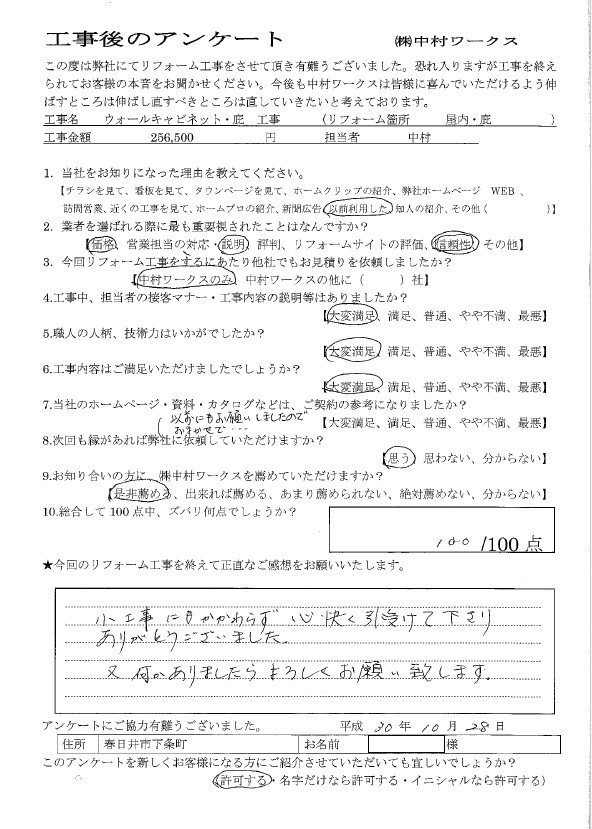 工事後のアンケート ㈱中村ワークス
この度は弊社にてリフォーム工事をさせて頂き有難うございました。恐れ入りますが工事を終え
られてお客様の本音をお聞かせください。今後も中村ワークスは皆様に喜んでいただけるよう伸
ばすところは伸ばし直すべきところは直していきたいと考えております。
工事名 ウォールキャビネット・庇 工事 (リフォーム箇所 屋内・庇 )
工事金額 256,500 円 担当者 中村
1. 当社をお知りになった理由を教えてください。
【チラシを見て、看板を見て、タウンページを見て、ホームクリップの紹介、弊社ホームページ WEB 、
訪問営業、近くの工事を見て、ホームプロの紹介、新聞広告、以前利用した、知人の紹介、その他( )】
2. 業者を選ばれる際に最も重要視されたことはなんですか?
【価格、営業担当の対応・説明、評判、リフォームサイトの評価、信頼性、その他】
3. 今回リフォーム工事をするにあたり他社でもお見積りを依頼しましたか?
【中村ワークスのみ、中村ワークスの他に( )社】
4.工事中、担当者の接客マナー・工事内容の説明等はありましたか?
【大変満足、満足、普通、やや不満、最悪】
5.職人の人柄、技術力はいかがでしたか?
【大変満足、満足、普通、やや不満、最悪】
6.工事内容はご満足いただけましたでしょうか?
【大変満足、満足、普通、やや不満、最悪】
7.当社のホームページ・資料・カタログなどは、ご契約の参考になりましたか?
【大変満足、満足、普通、やや不満、最悪】
以前にもお願いしましたので
おまかせで・・・
8.次回も縁があれば弊社に依頼していただけますか?
【思う、思わない、分からない】
9.お知り合いの方に、㈱中村ワークスを薦めていただけますか?
【是非薦める、出来れば薦める、あまり薦められない、絶対薦めない、分からない】
10.総合して100点中、ズバリ何点でしょうか?
100 /100点
★今回のリフォーム工事を終えて正直なご感想をお願いいたします。
小工事にもかかわらず 心快く引受けて下さり
ありがとうございました。
又 何かありましたらよろしくお願い致します。
アンケートにご協力有難うございました。 平成 30 年 10 月 28 日
住所 春日井市下条町 お名前 様
このアンケートを新しくお客様になる方にご紹介させていただいても宜しいでしょうか?
(許可する・名字だけなら許可する・イニシャルなら許可する)